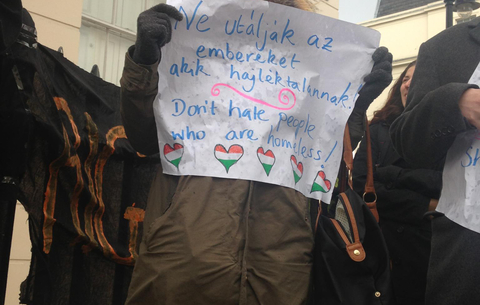 Ne utálják az
embereket
akik hajléktalannak!
Don't hate people
who are homeless!